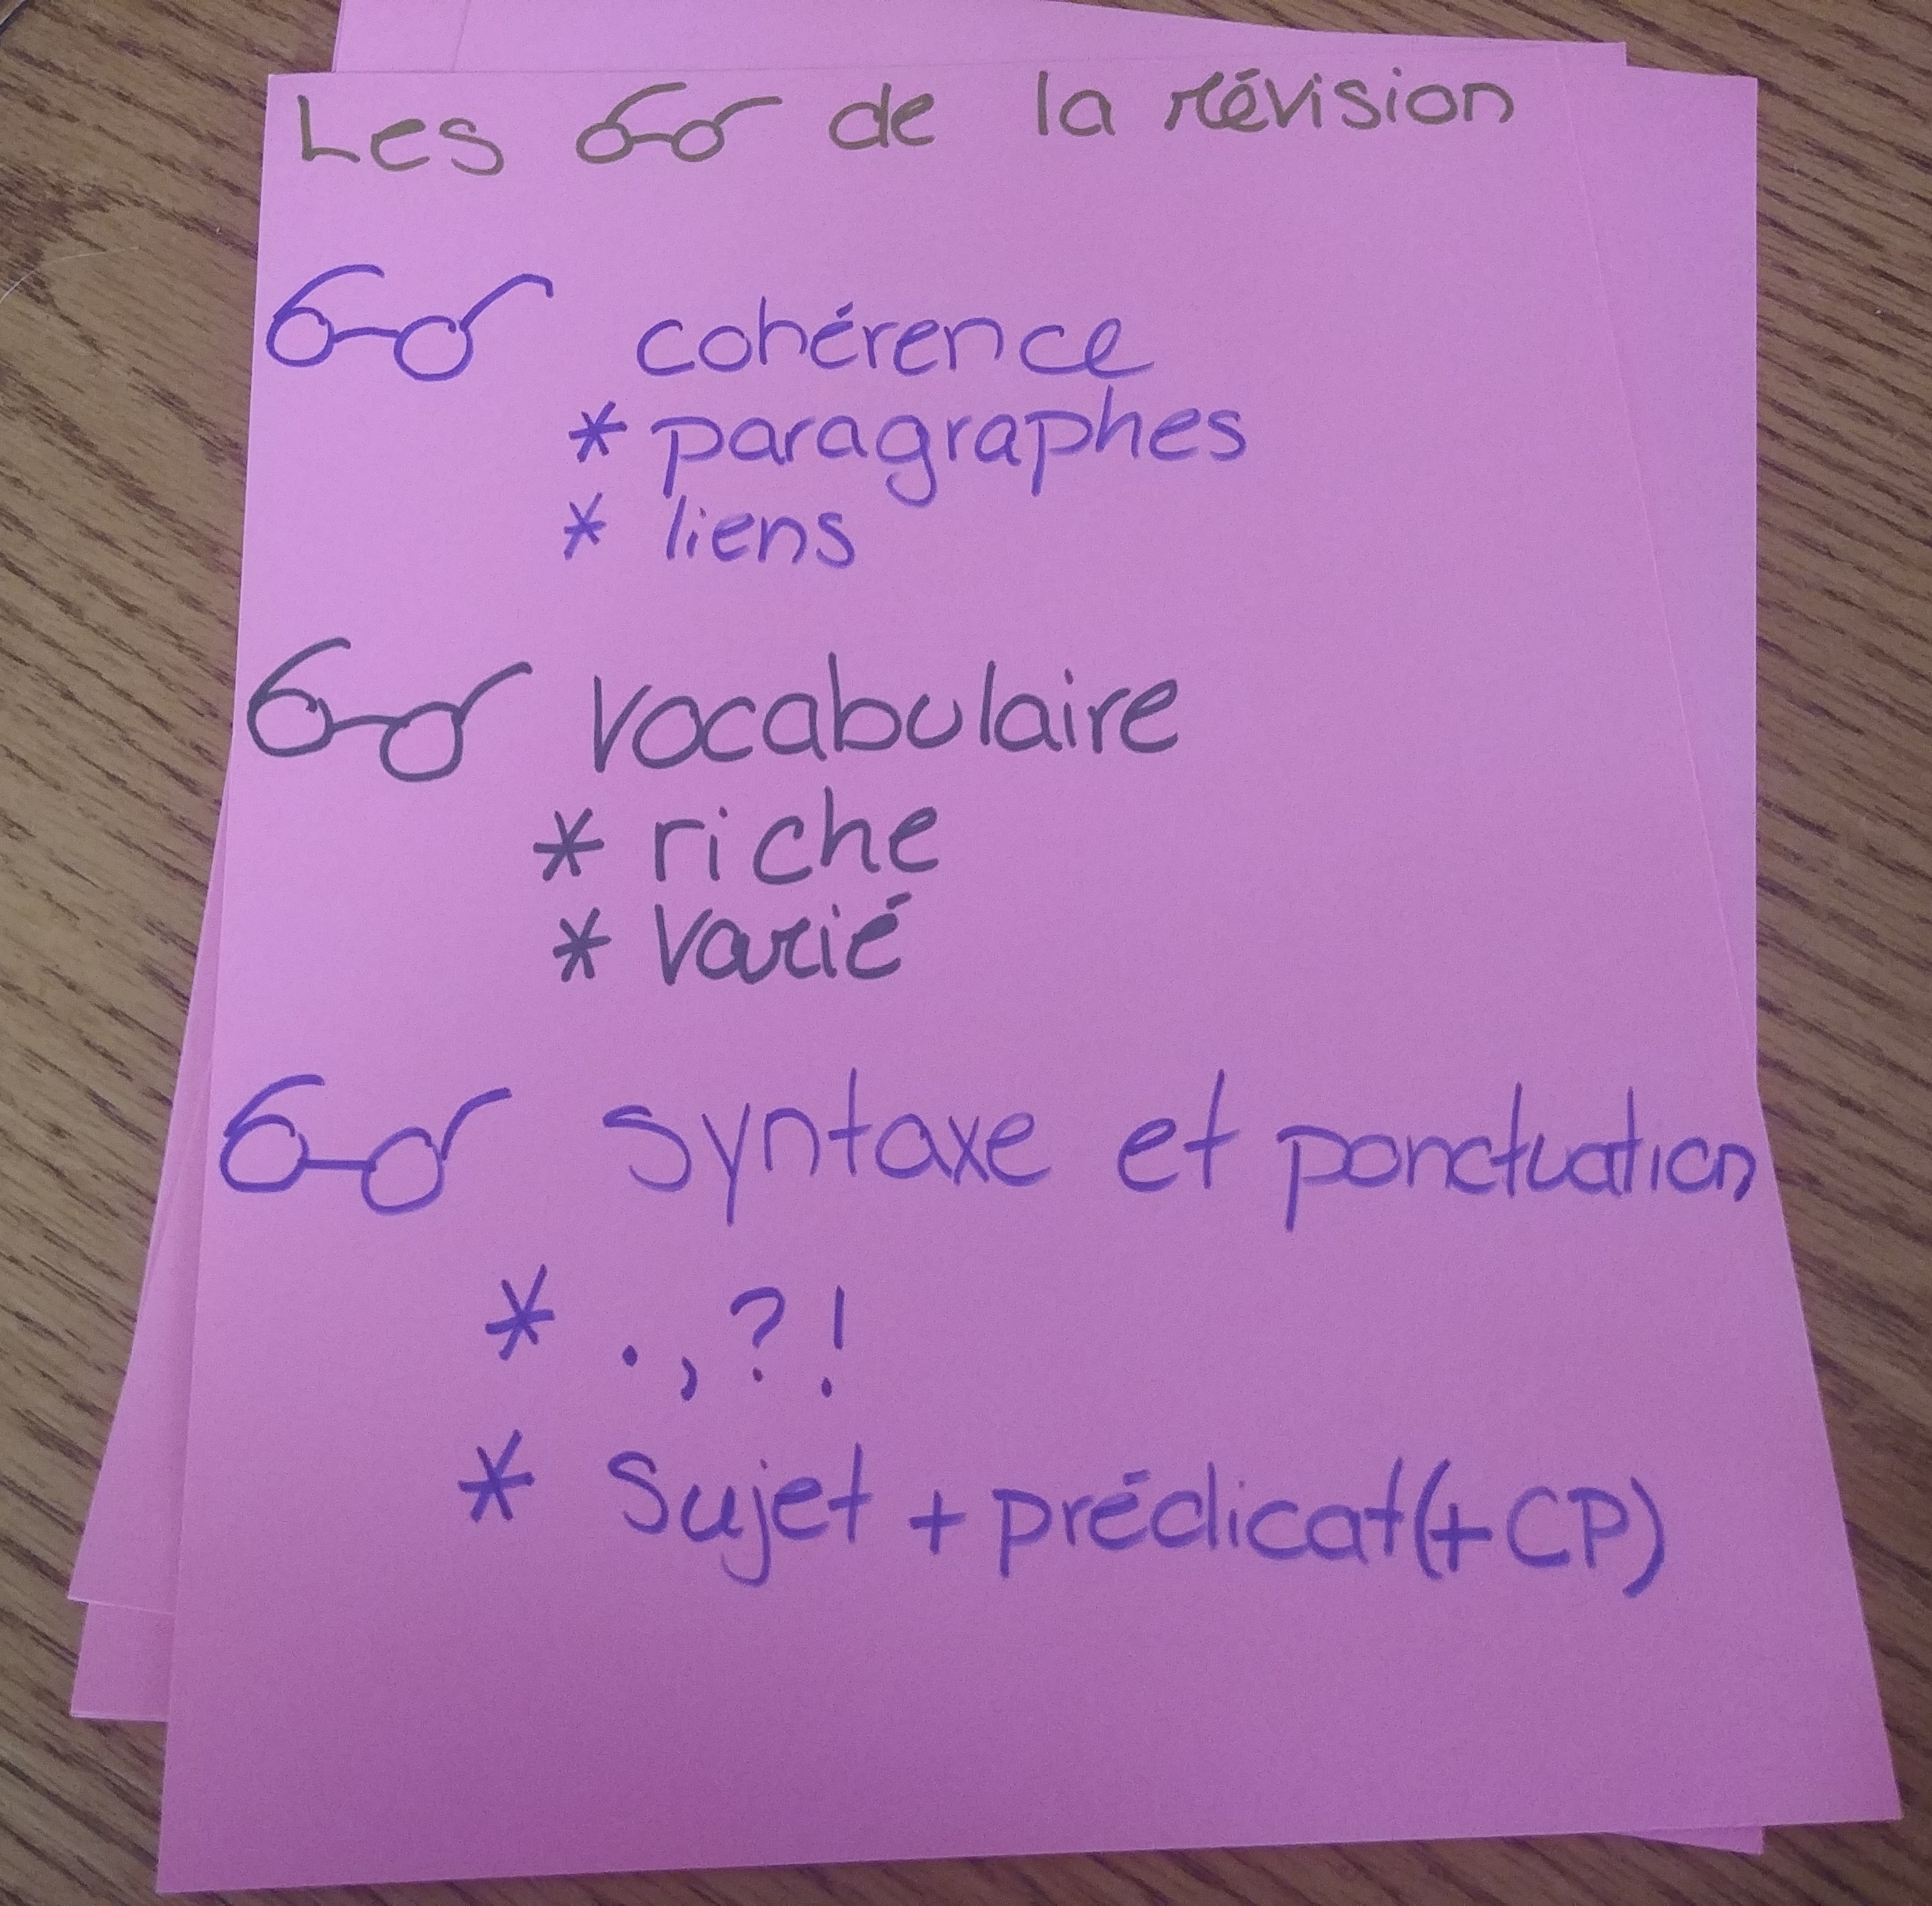 Les de la révision
cohérence
* paragraphes
* liens
vocabulaire
* riche
* varié
syntaxe et ponctuation
* . , ? !
* Sujet + prédicat (+ CP)